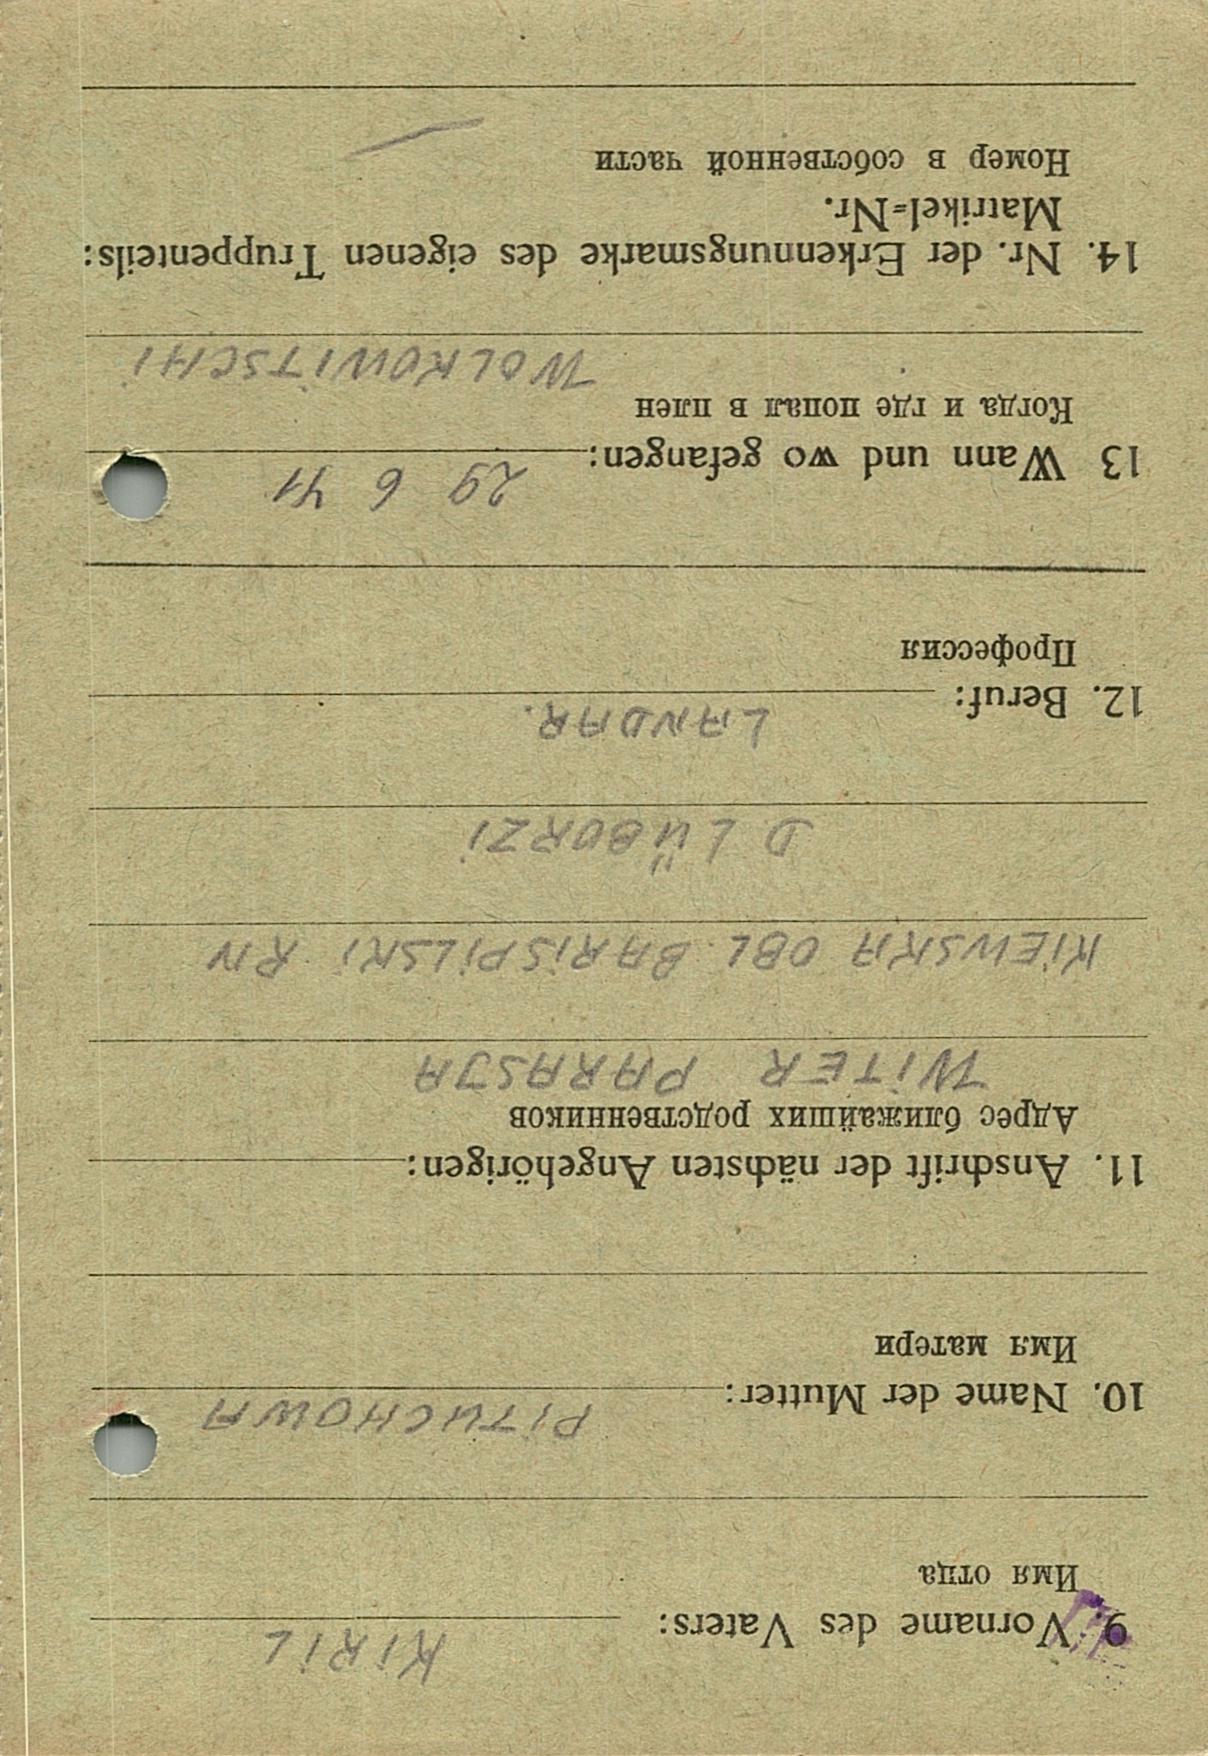 9. Vorname des Vaters: KIRIL
Имя отца
10. Name der Mutter: PITUCHOWA
Имя матери
11. Anschrift der nächsten Angehörigen:
Адрес ближайших родственников
WITER PARASJA
KIEWSKA OBL. BARISPILSKI RN
D LÜBORZI
12. Beruf: LANDAR.
Профессия
13 Wann und wo gefangen: 29 6 41
Когда и где попал в плен
WOLKOWITSCHI
14. Nr. der Erkennungsmarke des eigenen Truppenteils:
Matrikel=Nr.
Номер в собственной части
—